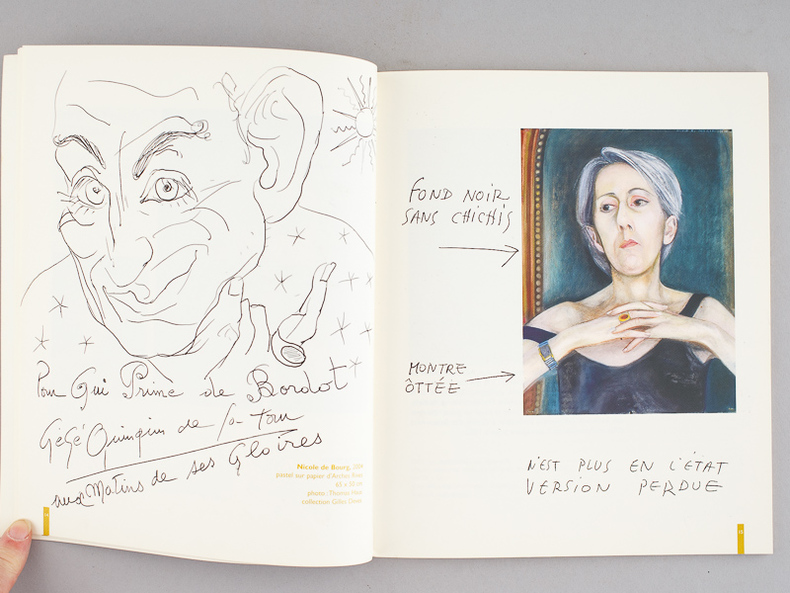 Pour Gui Prince de Bordot
Gégé Quinquin de sa tour
aux Matins de ses Gloires
Nicole de Bourg,
pastel sur papier d'Arches
65 x 50 cm
photo : Thomas
collection Gilles
FOND NOIR
SANS CHICHIS
MONTRE
ÔTTÉE
N'EST PLUS EN L'ÉTAT
VERSION PERDUE